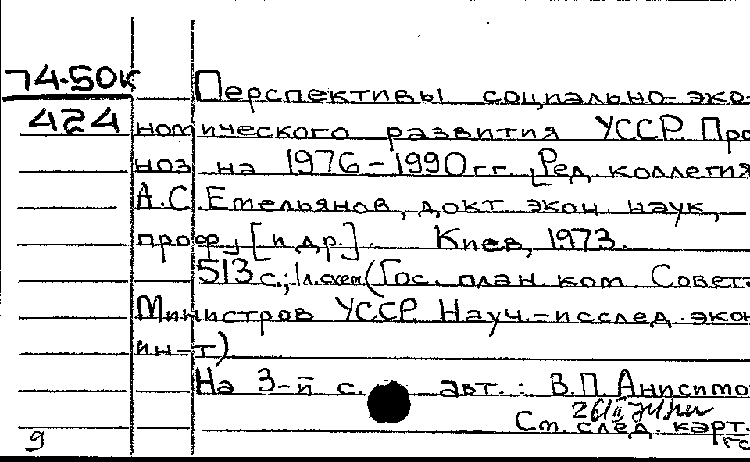 74-50к
424
Перспективы социально-эко-
номического развития УССР. Про
ноз на 1976-1990 гг. [Ред. коллегия
А.С. Емельянов, докт. экон. наук,
проф., [и др.]. Киев, 1973.
513 с.; 1 л. схем (Гос. план. ком. Совета
Министров УССР. Науч.-исслед. экон
ин-т)
На 3-й с. авт.: В.П. Анисимо
См. след. карт.
9